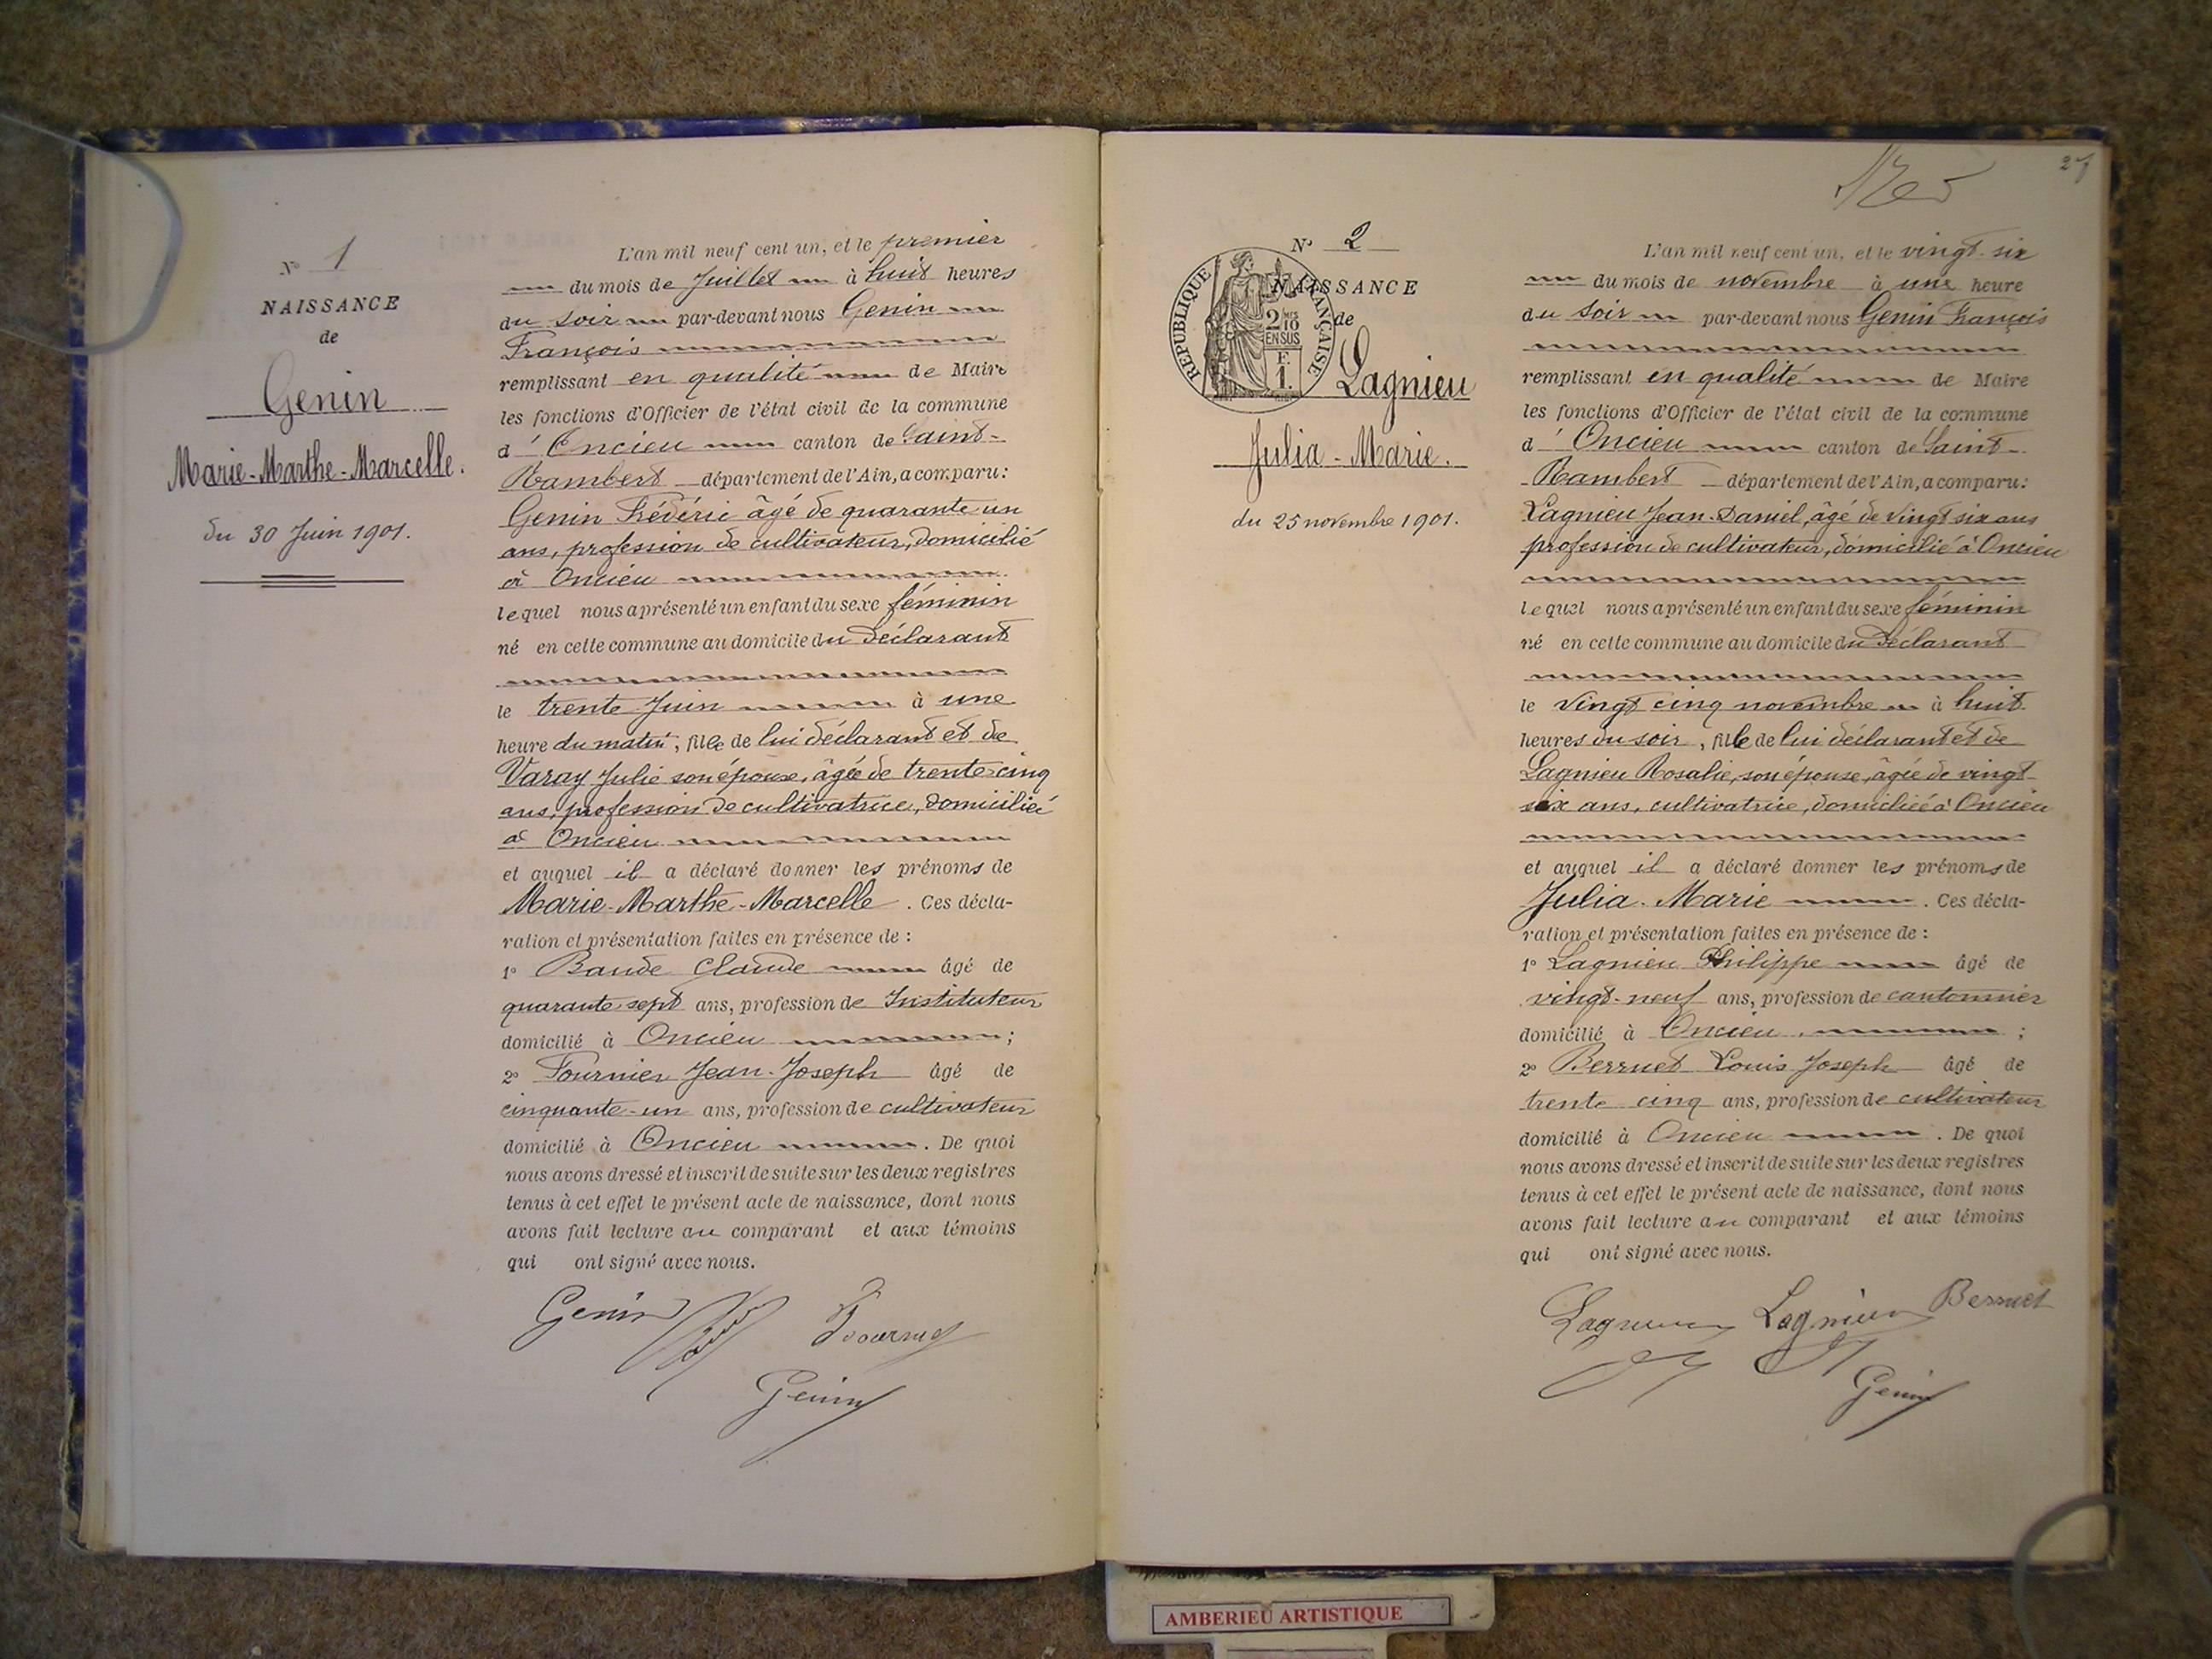 N° 1
NAISSANCE
de
Genin
Marie-Marthe-Marcelle.
du 30 Juin 1901.
L'an mil neuf cent un, et le premier
du mois de Juillet à huit heures
du soir par-devant nous Genin
François
remplissant en qualité de Maire
les fonctions d'Officier de l'état civil de la commune
d' Oncieu canton de Saint-
Rambert département de l'Ain, a comparu:
Genin Frédéric âgé de quarante un
ans, profession de cultivateur, domicilié
à Oncieu
lequel nous a présenté un enfant du sexe féminin
né en cette commune au domicile du déclarant
le trente Juin à une
heure du matin, fille de lui déclarant et de
Varay Julie son épouse, âgée de trente-cinq
ans, profession de cultivatrice, domiciliée
à Oncieu
et auquel il a déclaré donner les prénoms de
Marie-Marthe-Marcelle. Ces décla-
ration et présentation faites en présence de :
1° Baude Claude âgé de
quarante-sept ans, profession de Instituteur
domicilié à Oncieu ;
2° Fournier Jean-Joseph âgé de
cinquante-un ans, profession de cultivateur
domicilié à Oncieu . De quoi
nous avons dressé et inscrit de suite sur les deux registres
tenus à cet effet le présent acte de naissance, dont nous
avons fait lecture au comparant et aux témoins
qui ont signé avec nous.
Genin
Genin
27
N° 2
NAISSANCE
de
REPUBLIQUE FRANÇAISE
2/10
EN SUS
F.
1.
Lagnieu
Julia-Marie.
du 25 novembre 1901.
L'an mil neuf cent un, et le vingt-six
du mois de novembre à une heure
du soir par-devant nous Genin François
remplissant en qualité de Maire
les fonctions d'Officier de l'état civil de la commune
d' Oncieu canton de Saint-
Rambert département de l'Ain, a comparu:
Lagnieu Jean-Daniel, âgé de vingt six ans
profession de cultivateur, domicilié à Oncieu
lequel nous a présenté un enfant du sexe féminin
né en cette commune au domicile du déclarant
le vingt cinq novembre à huit
heures du soir, fille de lui déclarant et de
Lagnieu Rosalie, son épouse, âgée de vingt
six ans, cultivatrice, domiciliée à Oncieu
et auquel il a déclaré donner les prénoms de
Julia-Marie . Ces décla-
ration et présentation faites en présence de :
1° Lagnieu Philippe âgé de
vingt-neuf ans, profession de cantonnier
domicilié à Oncieu ;
2° Berruet Louis Joseph âgé de
trente cinq ans, profession de cultivateur
domicilié à Oncieu . De quoi
nous avons dressé et inscrit de suite sur les deux registres
tenus à cet effet le présent acte de naissance, dont nous
avons fait lecture au comparant et aux témoins
qui ont signé avec nous.
Lagnieu Lagnieu Berruet
Genin
AMBERIEU ARTISTIQUE